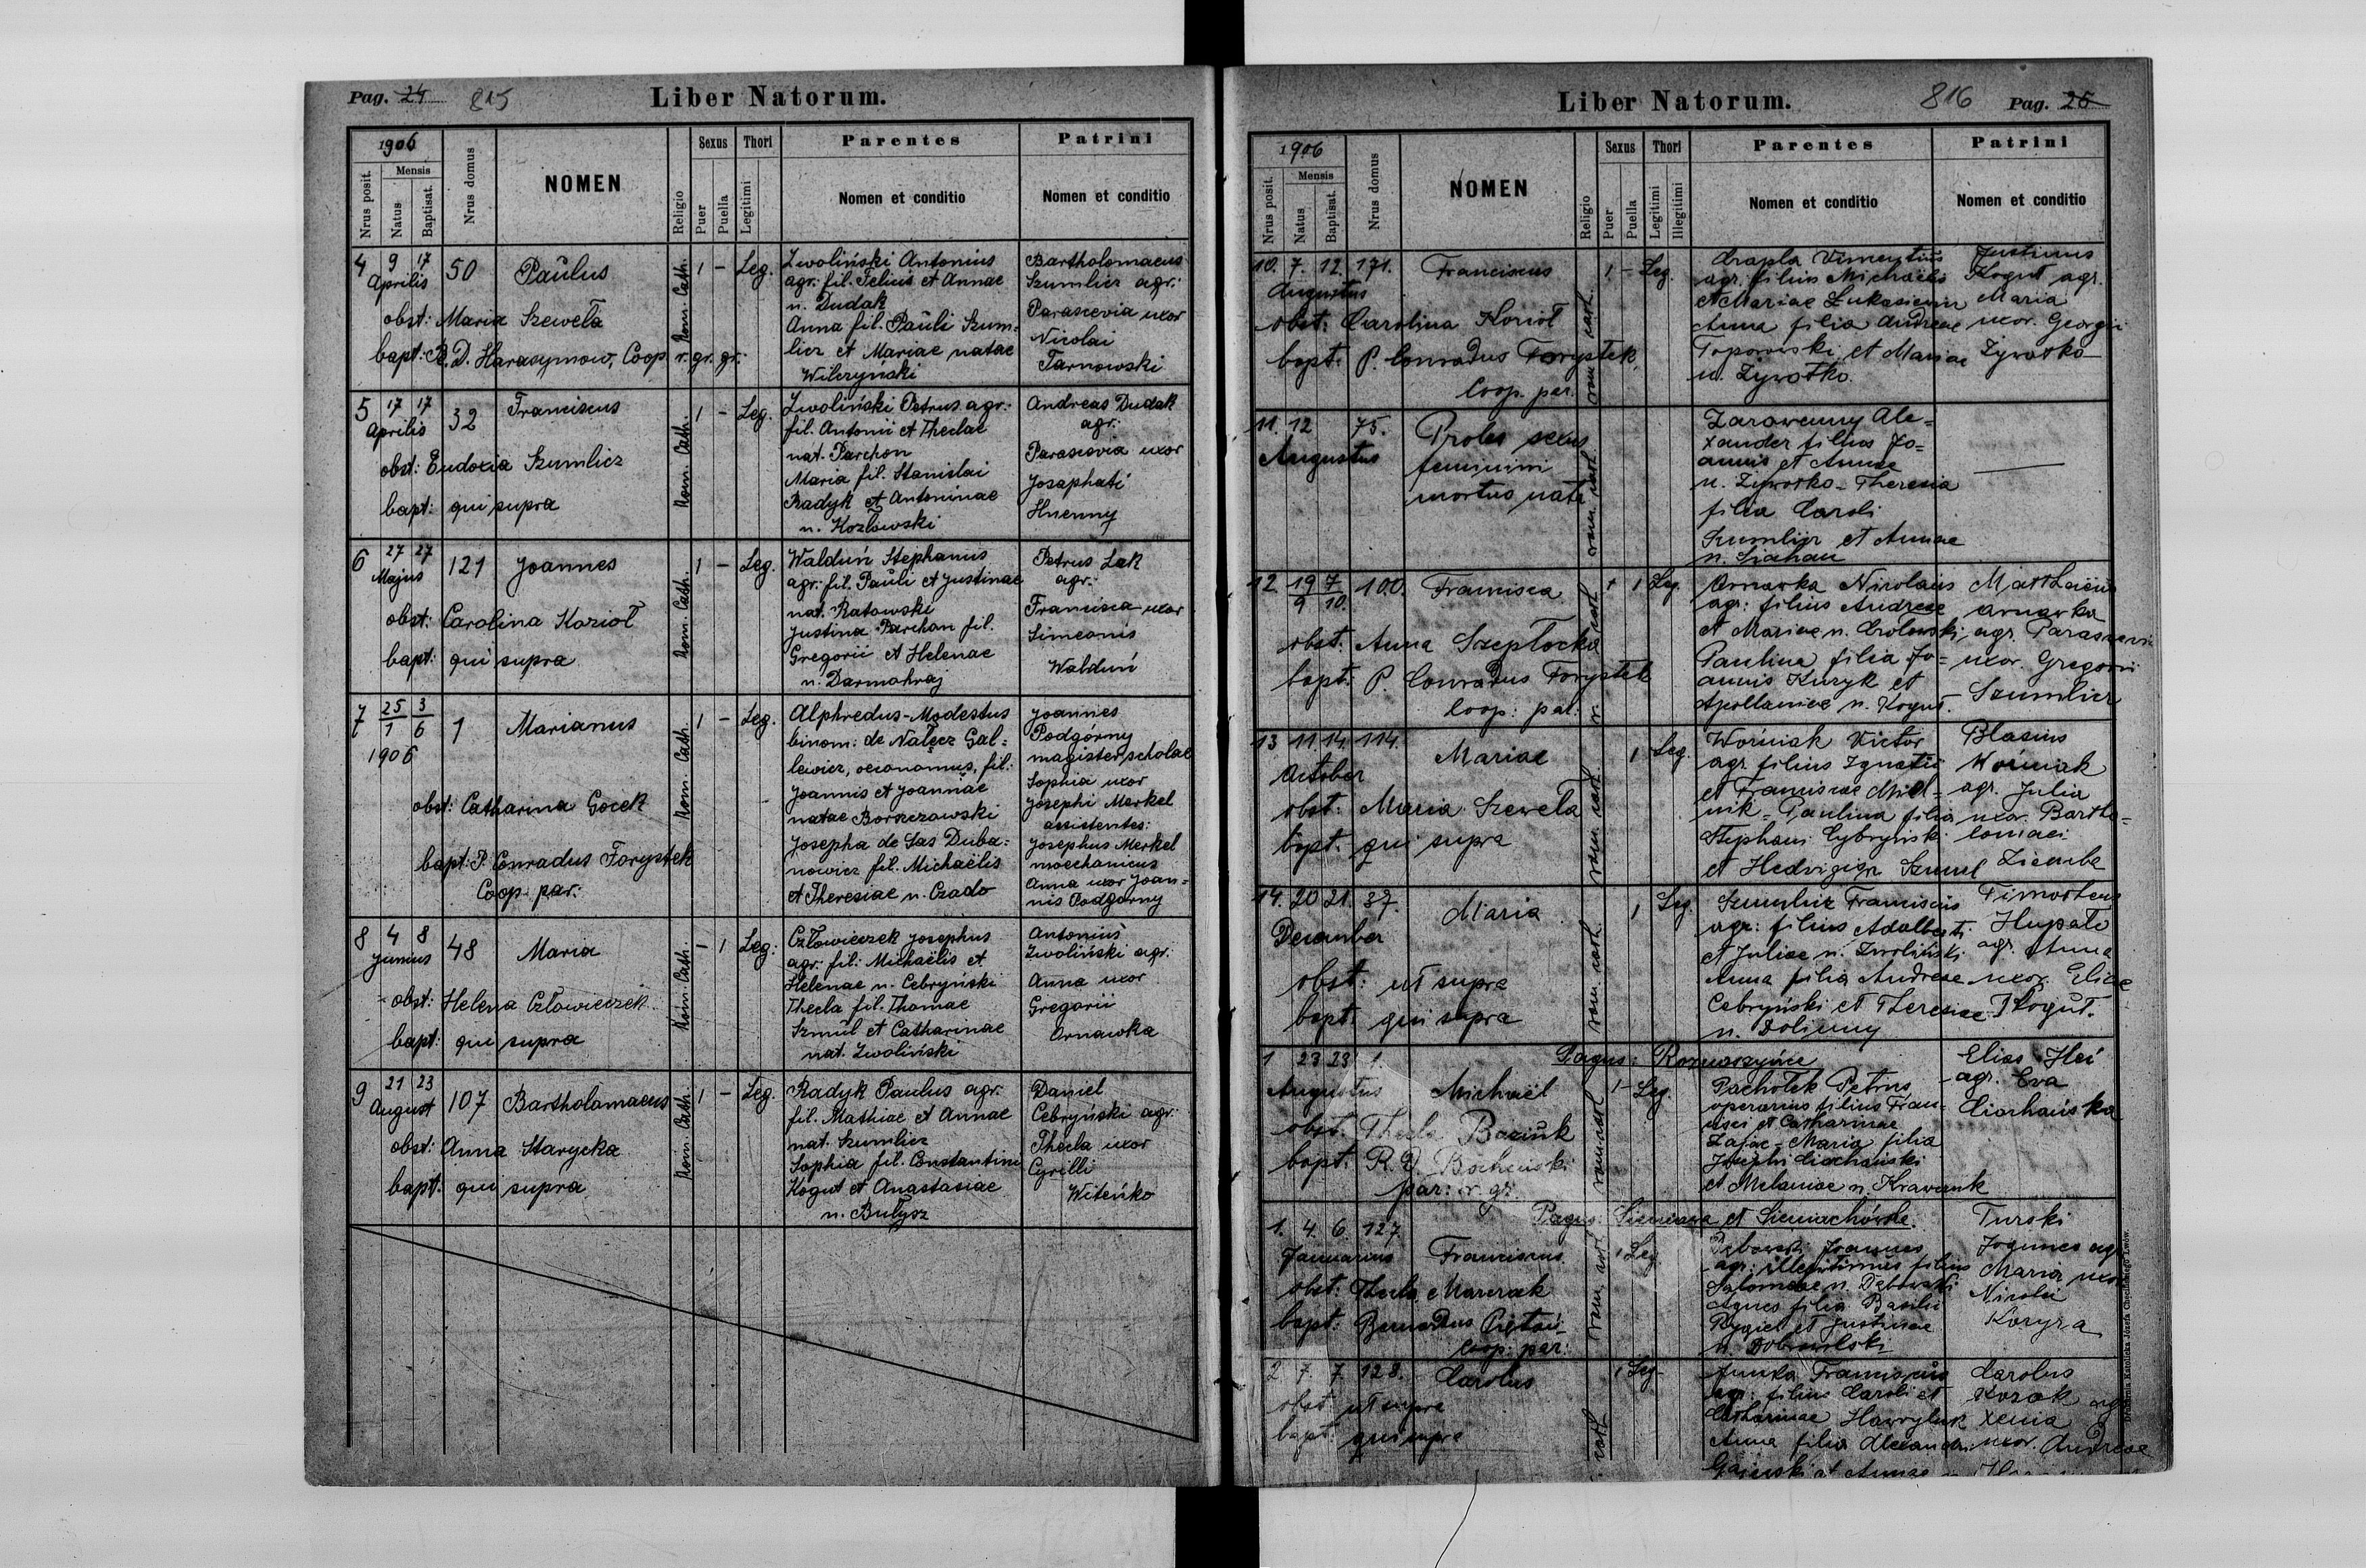 Pag. 24 815 Liber Natorum.
1906
Nrus posit.
Mensis
Natus
Baptisat.
Nrus domus
NOMEN
Religio
Sexus
Puer
Puella
Thori
Legitimi
Parentes
Nomen et conditio
Patrini
Nomen et conditio
4 9 17 Aprilis 50 Paulus Rom. Cath. 1 – Leg.
obst: Maria Szeweła
bapt: R.D. Harasymow, Coop. r. gr. gr.
Zwoliński Antonius
agr: fil. Felicis et Annae
n. Dudak
Anna fil. Pauli Szum=
licz et Mariae natae
Wilczyński
Bartholomaeus
Szumlicz agr:
Parascevia uxor
Nicolai
Tarnowski
5 17 17 Aprilis 32 Franciscus Rom. Cath. 1 – Leg.
obst: Eudoxia Szumlicz
bapt: qui supra
Zwoliński Petrus agr:
fil. Antonii et Theclae
nat. Parchon
Maria fil. Stanislai
Radyk et Antoninae
n. Kozłowski
Andreas Dudak
agr:
Parascevia uxor
Josaphati
Hnenny
6 27 27 Majus 121 Joannes Rom. Cath. 1 – Leg.
obst: Carolina Kozioł
bapt: qui supra
Walduń Stephanus
agr: fil. Pauli et Justinae
nat. Ratowski
Justina Parchon fil.
Gregorii et Helenae
n. Darmohraj
Petrus Lek
agr:
Francisca uxor
Simeonis
Walduń
7 25/1 3/6 1906 1 Marianus Rom. Cath. 1 – Leg.
obst: Catharina Gocek
bapt: P. Conradus Forystek
Coop. par:
Alphredus-Modestus
binom: de Nałęcz Gal=
lewicz, oeconomus, fil:
Joannis et Joannae
natae Borszczowski
Josepha de Sas Duba=
nowicz fil. Michaëlis
et Theresiae n. Czado
Joannes
Podgórny
magister scholae
Sophia uxor
Josephi Merkel
assistentes:
Josephus Merkel
moechanicus
Anna uxor Joan=
nis Podgórny
8 4 8 Junius 48 Maria Rom. Cath. – 1 Leg:
obst: Helena Człowieczek
bapt: qui supra
Człowieczek Josephus
agr: fil: Michaëlis et
Helenae n. Cebryński
Thecla fil. Thomae
Szmul et Catharinae
nat. Zwoliński
Antonius
Zwoliński agr:
Anna uxor
Gregorii
Arnawka
9 21 23 August 107 Bartholomaeus Rom. Cath. 1 – Leg.
obst: Anna Starycka
bapt: qui supra
Radyk Paulus agr:
fil. Mathiae et Annae
nat. Szumlicz
Sophia fil. Constantini
Kogut et Anastasiae
n. Butysz
Daniel
Cebryński agr:
Thecla uxor
Cyrilli
Witeńko
Liber Natorum. 816 Pag. 25
1906
Nrus posit.
Mensis
Natus
Baptisat.
Nrus domus
NOMEN
Religio
Sexus
Puer
Puella
Thori
Legitimi
Illegitimi
Parentes
Nomen et conditio
Patrini
Nomen et conditio
10. 7. 12. Augustus 171. Franciscus rom. cath. 1 – Leg.
obst: Carolina Kozioł
bapt. P. Conradus Forystek,
Coop. par.
agr. filius Michaëlis
et Mariae Łukasiewicz
Anna filia Andreae
Topowski et Mariae
n. Żywotko.
Justinus
Kogut agr.
Maria
uxor. Georgii
Żywotko
11. 12 Augustus 75. Proles sexus
feminini
mortuo nata
rom. cath.
Zarowenny Ale=
xander filius Jo=
annis et Annae
n. Żywotko – Theresia
filia Caroli
Szumlicz et Annae
12 19/9 7/10. 100. Francisca rom. cath. 1 Leg.
obst. Anna Szepłocka
bapt. P. Conradus Forystek
Coop: par:
Arnawka Nicolaus
agr: filius Andreae
et Mariae n.
Paulina filia Jo=
annis Kuzyk et
Apolloniae n. Kogut.
Matthaeus
Arnawka
agr. Parascevia
uxor. Gregorii
Szumlicz
13 11. 14. October 114. Mariae rom. cath. 1 Leg.
obst: Maria Szeweła
bapt. qui supra
Woźniak Victor
agr. filius Ignatii
et Franciscae Miel=
nik – Paulina filia
Stephani Cybryński
et Hedvigis Szmul
Blasius
Woźniak
agr. Julia
uxor. Bartho=
lomaei
Ziemba
14. 20 21. December 37. Maria rom. cath. 1 Leg.
obst: ut supra
bapt. qui supra
Szumlicz Franciscus
agr: filius Adalberti
et Juliae n. Zwoliński
Anna filia Andreae
Cebryński et Theresiae
n. Dolinny
Timotheus
Hupało
agr. Anna
uxor. Eliae
Kogut.
Pagus: Rożwoszyńce
1 23 23 Augustus 1. Michaël rom. cath. 1 – Leg.
obst: Thecla Baziuk
bapt. R. D. Bocheński
par: r. gr.
Pachołek Petrus
operarius filius Fran=
cisci et Catharinae
Zając – Maria filia
Josephi Ciechański
et Melaniae n. Krawczuk
Elias
agr. Eva
Ciechańska
Pagus: Sieniawa et Sieniachówka.
1. 4. 6. Januarius 127. Franciscus rom. cath. 1 Leg.
obst: Thecla Marczak
bapt:
Coop: par:
Dębowski Joannes
agr: illegitimus filius
Salomeae n. Dębowski
Agnes filia Basilii
Rygiel et Justinae
n. Dobrowolski
Turski
Joannes agr.
Maria uxor
Nicolai
Koryra
2 7. 7. 128. Carolus cath. 1 Leg.
obst: ut supra
bapt: qui supra
Franciscus
agr: filius Caroli et
Catharinae Hawryluk
Anna filia Alexandri
Gajewski et Annae
Carolus
Kozak agr.
Xenia
uxor. Andreae
Drukarnia Katolicka Józefa Chęcińskiego Lwów.